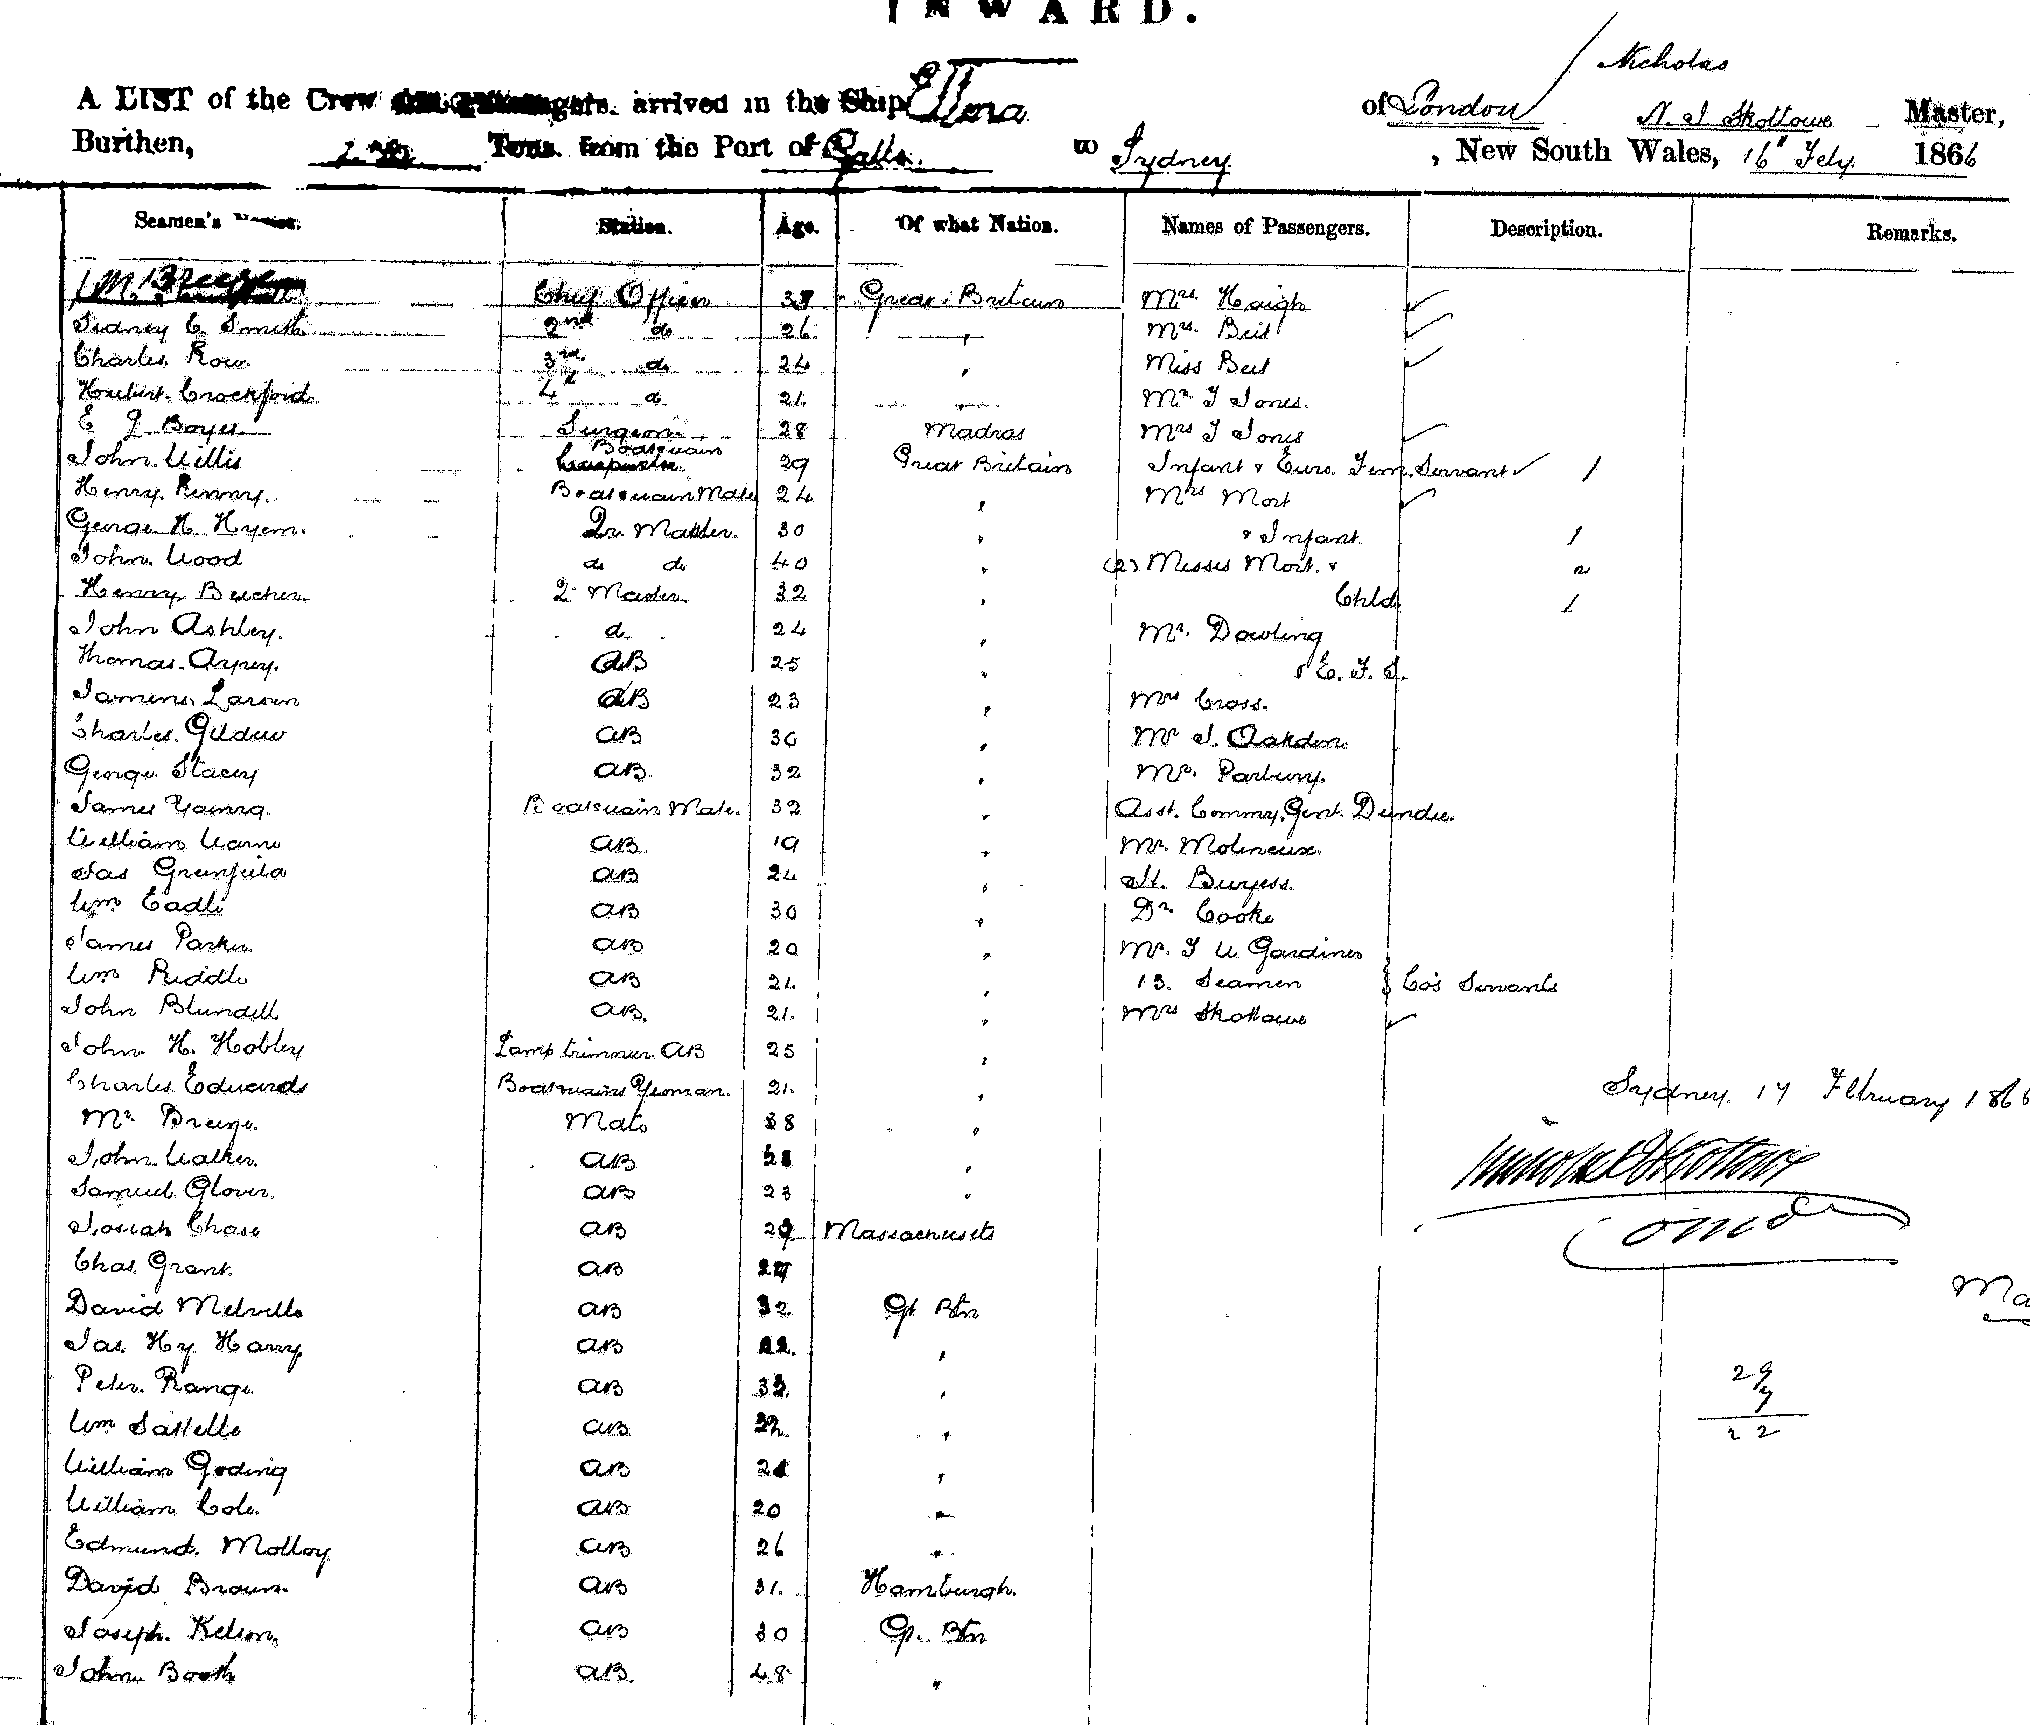 INWARD.
Nicholas
A LIST of the Crew arrived in the Ship Ellora of London N. J Skottowe Master,
Burthen, Tons from the Port of Galle to Sydney, New South Wales, 16" Feby. 1866
Seamen's Names. Station. Age. Of what Nation. Names of Passengers. Description. Remarks.
Chief Officer 38 Great Britain Mrs Haigh ✓
Sidney C. Smith 2nd do 26 " Mrs. Beit ✓
Charles Row 3rd do 24 " Miss Beit ✓
Herbert Crockford 4th do 21 " Mr J Jones
E J Boyes Surgeon 28 Madras Mrs J Jones ✓
John Willis Boatswain 29 Great Britain Infant & Euro. Fem. Servant ✓ 1
Henry Penny. Boatswain Mate 24 " Mrs Mort ✓
George H. Hyem. Qr Master. 30 " & Infant 1
John Wood do do 40 " (2) Misses Mort & 2
Henry Beecher Q Master 32 " Chld 1
John Ashley. do 24 " Mr. Dowling
Thomas Arpey. AB 25 " & E. F. S.
Larsen AB 23 " Mrs Cross.
Charles AB 30 " Mr J. Oakden
George Stacey AB. 32 " Mr. Parbury.
James Young Boatswain Mate. 32 " Asst. Commy. Genl. Dundee.
William Warne AB. 19 " Mr. Molineux.
Jas Grenfield AB 24 " Lt. Burgess.
Wm Eadie AB 30 " Dr. Cooke
James Parker AB 20 " Mr. J W Gardiner
Wm Riddle AB 21. " 13. Seamen } Co's Servants
John Blundell AB. 21. " Mrs Skottowe ✓
John H. Hobley Lamp trimmer AB 25 "
Charles Edwards Boatswains Yeoman. 21. " Sydney 17 February 1866
Mr Mate 38 "
John Walker. AB "
Samuel Glover. AB 23 "
Josiah Chase AB 29 Massachusets
Comd
Chas. Grant AB
Ma
David Melville AB 32 Gt Btn
Jas. Hy Harry AB 22. "
Peter Range AB "
29
7
22
Wm AB "
William Goding AB "
William Cole. AB 20 "
Edmund. Molloy AB 26 "
David Brown AB 31. Hamburgh.
Joseph. Kelson AB 30 Gt. Btn
John Booth AB. 48 "